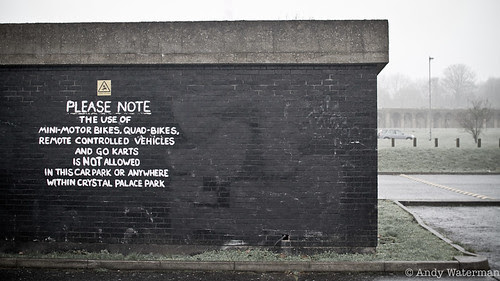 PLEASE NOTE
THE USE OF
MINI-MOTOR BIKES, QUAD-BIKES,
REMOTE CONTROLLED VEHICLES
AND GO KARTS
IS NOT ALLOWED
IN THIS CAR PARK OR ANYWHERE
WITHIN CRYSTAL PALACE PARK
© Andy Waterman